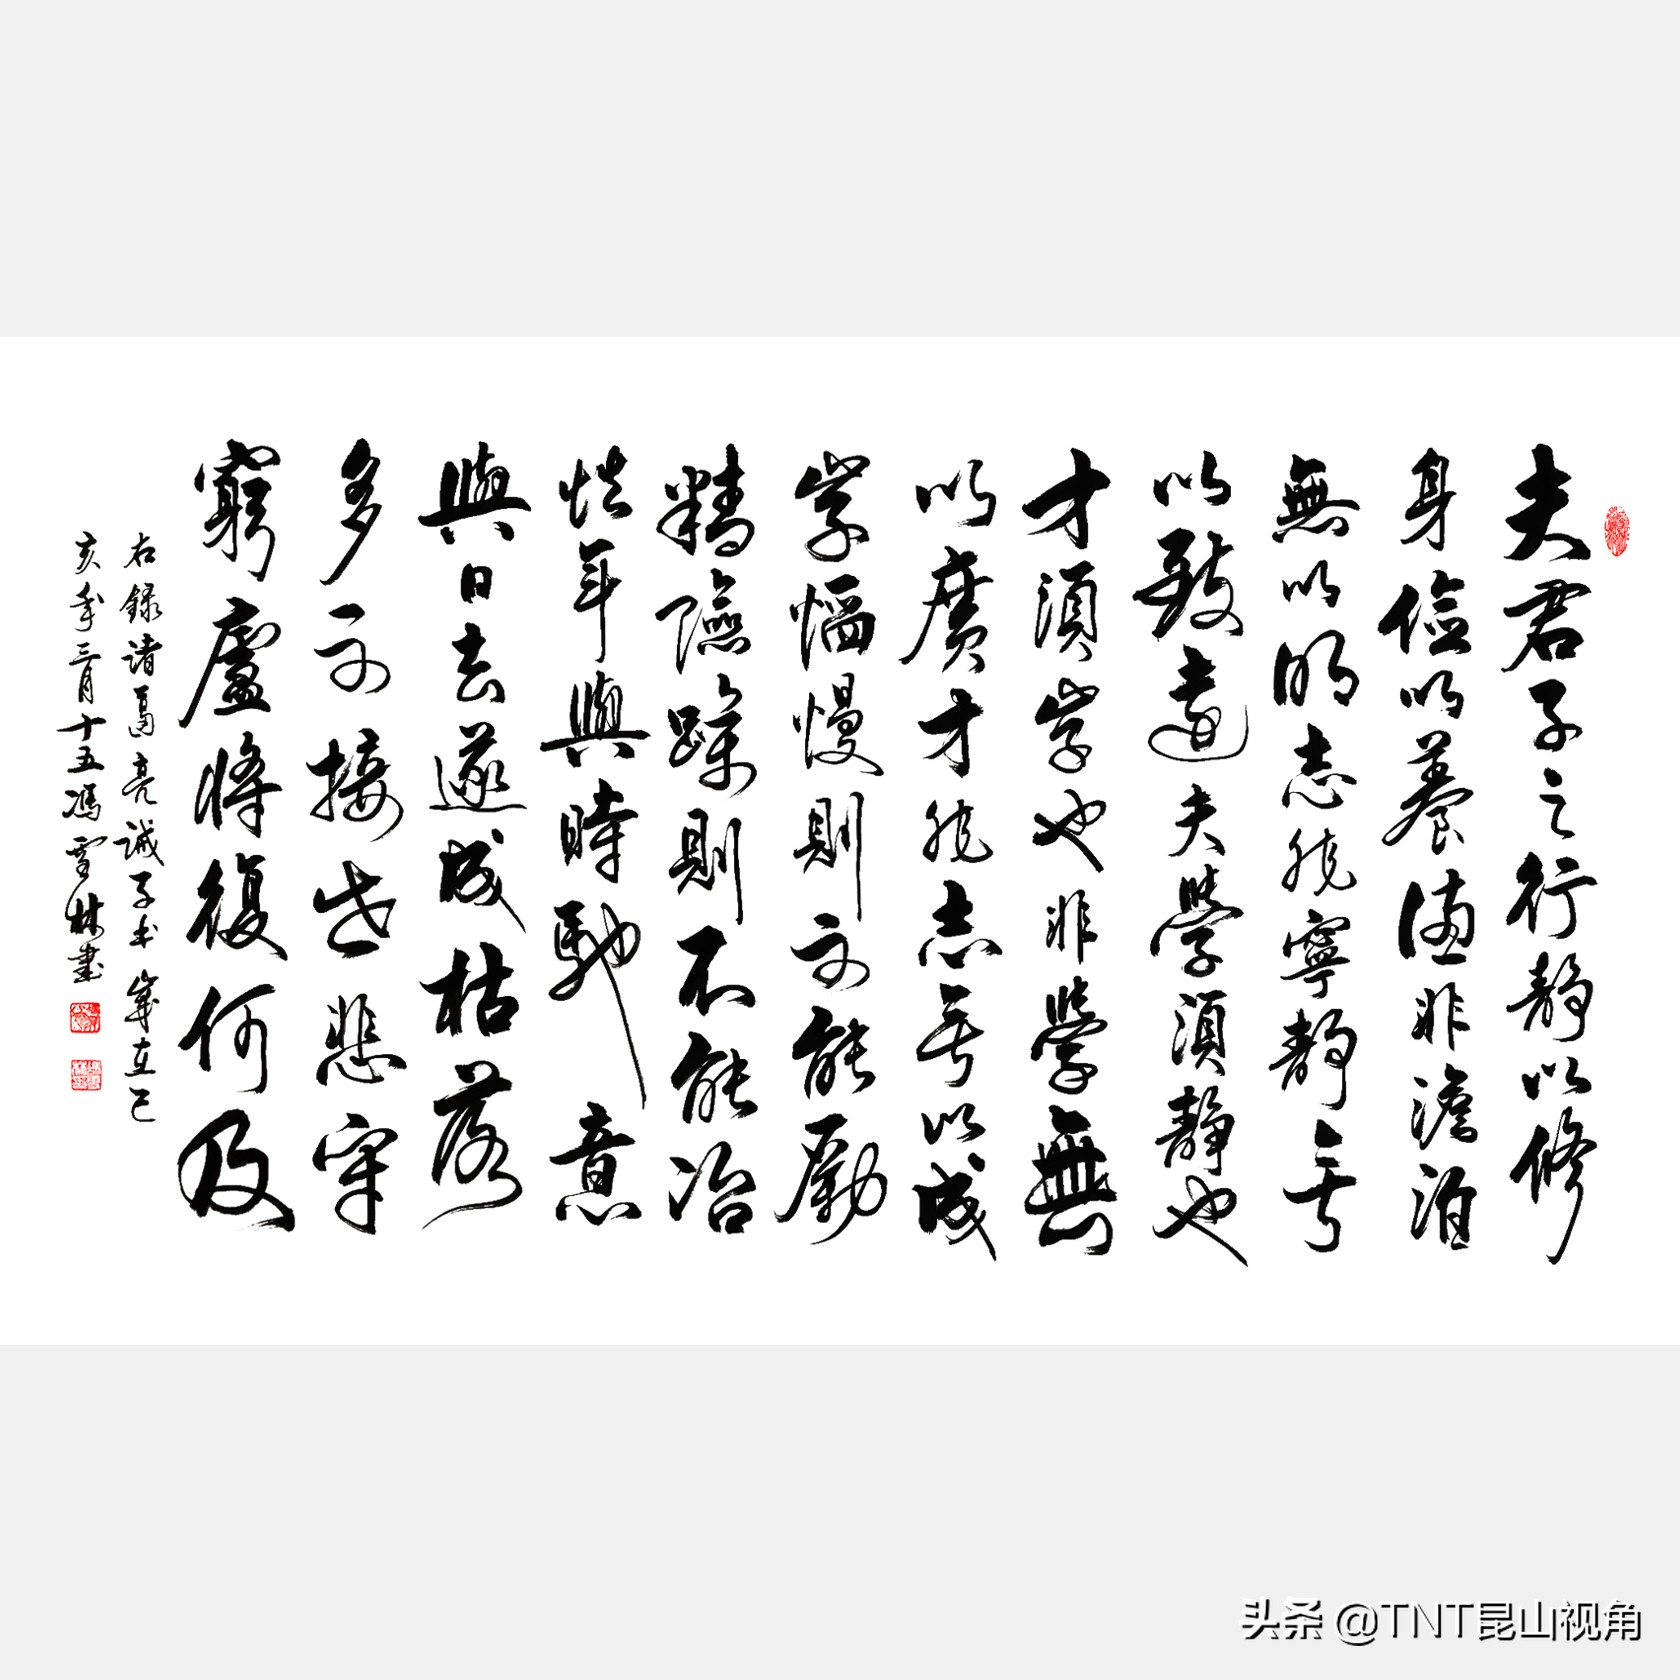 夫君子之行靜以修
身儉以養德非澹泊
無以明志非寧靜無
以致遠夫學須靜也
才須學也非學無
以廣才非志無以成
學慆慢則不能勵
精險躁則不能冶
性年與時馳意
與日去遂成枯落
多不接世悲守
窮廬將復何及
右錄諸葛亮誡子書歲在己
亥年三月十五馮雪林書
头条 @TNT昆山视角